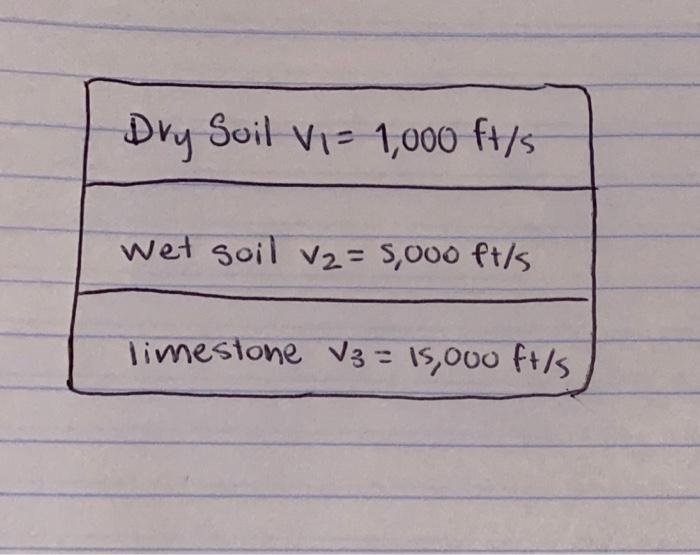 Dry Soil V1 = 1,000 ft/s
wet soil v2 = 5,000 ft/s
limestone V3 = 15,000 ft/s